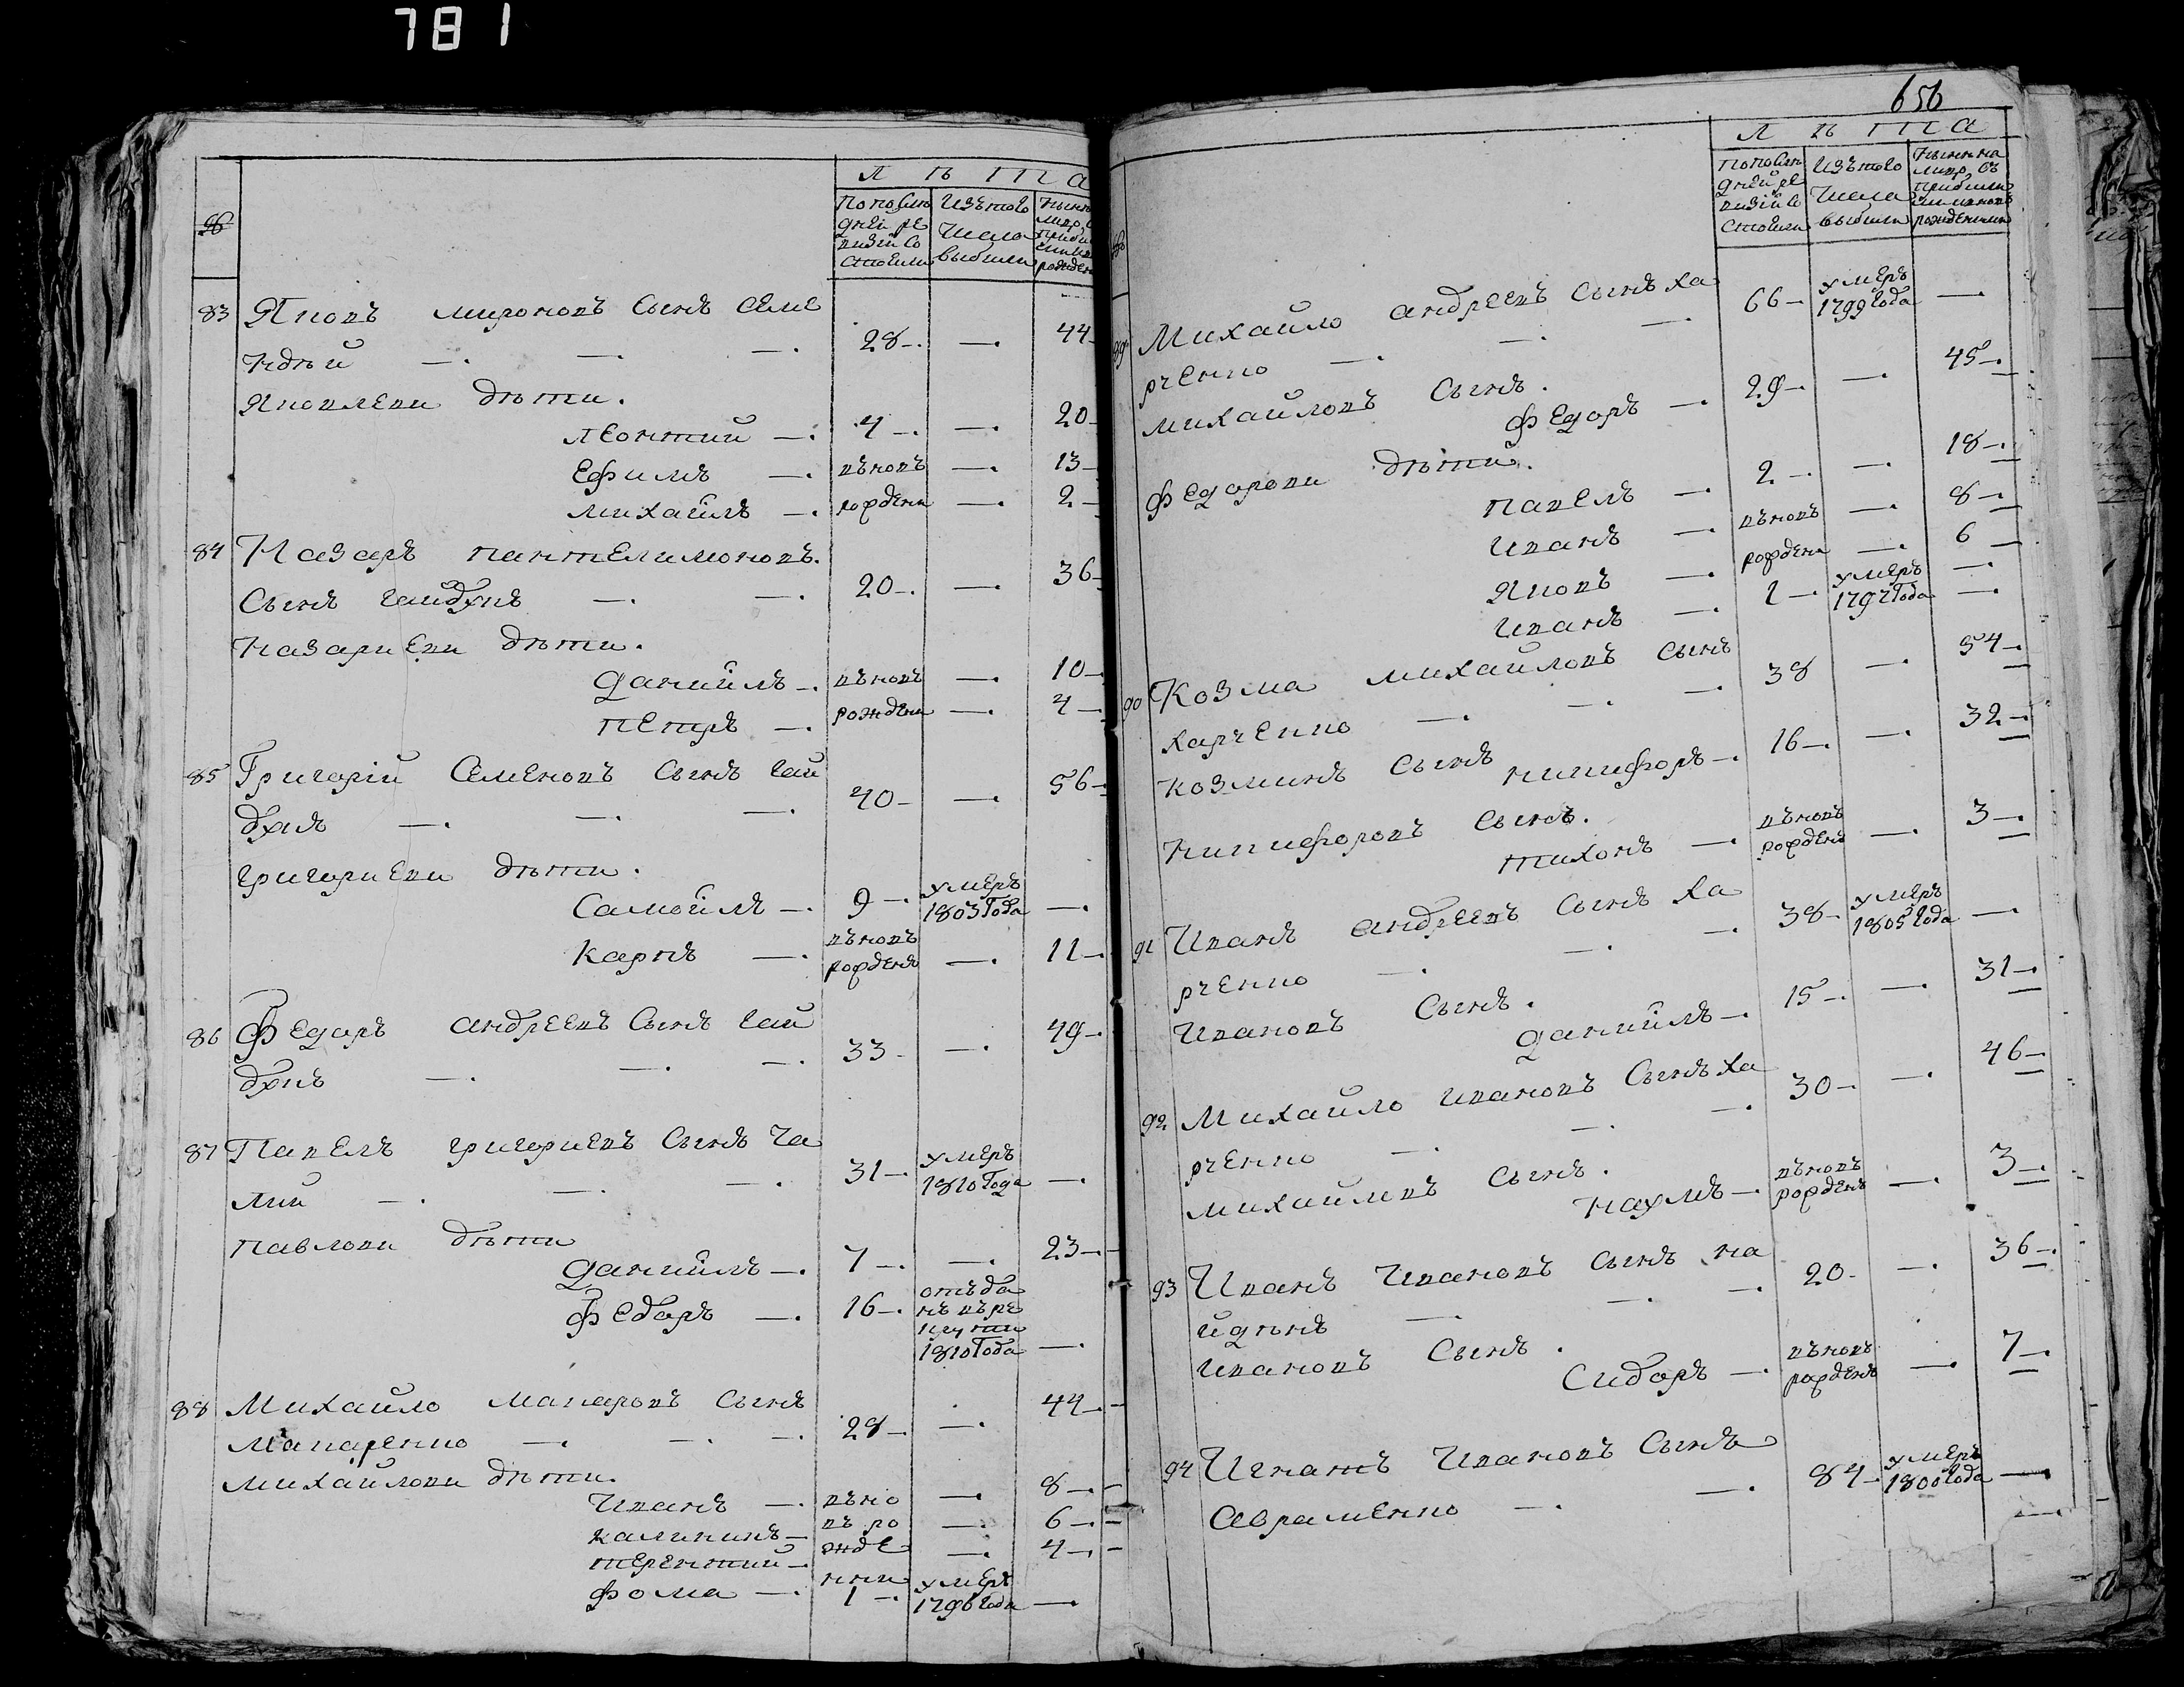 781
Л ѣ т а
№
По послѣ
дней ре
визіи со
стояли
Изъ того
числа
выбыли
83 Яковъ мироновъ Сынъ Семе
ндѣй —. —. —. 28—. —. 44—
Яковлеви дѣти.
леонтий —. 4—. —. 20—
Ефимъ —. вновь —. 13—
михайлъ —. рождени —. 2—
84 Назаръ пантелимоновъ.
Сынъ гайдукъ —. —. 20—. —. 36—
Назариеви дѣти.
данийлъ —. вновь —. 10—
петръ —. рождени —. 4—
85 Григорій Семеновъ Сынъ гай
дукъ —. —. —. 40— —. 56—
григориеви дѣти.
Самойлъ —. 9—. умеръ
1803 Года —.
карпъ —. вновь
рожденъ —. 11—
86 Федоръ андреевъ Сынъ гай
дукъ —. —. —. 33— —. 49—
87 Павелъ григориевъ Сынъ Ча
лий —. —. —. 31—. умеръ
1810 Года —.
павлови дѣти
данийлъ —. 7—. —. 23—
федоръ —. 16—. отъда
нъ въ ре
крути
1810 Года —.
88 Михайло макаровъ Сынъ
Макаренко —. —. —. 28— —. 44—
михайлови дѣти.
Иванъ —. вно —. 8—
калиникъ —. въ ро —. 6—
терентий —. жде —. 4—
фома —. нни 1—. умеръ
1796 Года —.
656
Л ѣ т а
По послѣ
дней ре
визіи со
стояли
Изъ того
числа
выбыли
89 Михайло андреевъ Сынъ ха
рченко —. —. —. 66— умеръ
1799 Года —.
михайловъ Сынъ.
федоръ —. 29—. —. 45—.
федорови дѣти.
павелъ —. 2—. —. 18—.
Иванъ —. вновь —. 8—.
Яковъ —. рождени —. 6
Иванъ —. 1—. умеръ
1797 Года —.
90 Козма михайловъ Сынъ
харченко —. —. —. 38 —. 54—.
козминъ Сынъ
никифоръ —. 16—. —. 32—.
никифоровъ Сынъ.
тихонъ —. вновь
рожденъ —. 3—.
91 Иванъ андреевъ Сынъ ха
рченко —. —. —. 38— умеръ
1805 Года —.
Ивановъ Сынъ.
данийлъ —. 15—. —. 31—.
92 Михайло Ивановъ Сынъ ха
рченко —. —. —. 30— —. 46—
михайловъ Сынъ.
наумъ —. вновь
рожденъ —. 3—.
93 Иванъ Ивановъ Сынъ на
йдѣнъ —. —. —. 20— —. 36—.
Ивановъ Сынъ.
Сидоръ —. вновь
рожденъ —. 7—.
94 Игнатъ Ивановъ Сынъ
Авраменко —. —. 84— умеръ
1800 Года —.